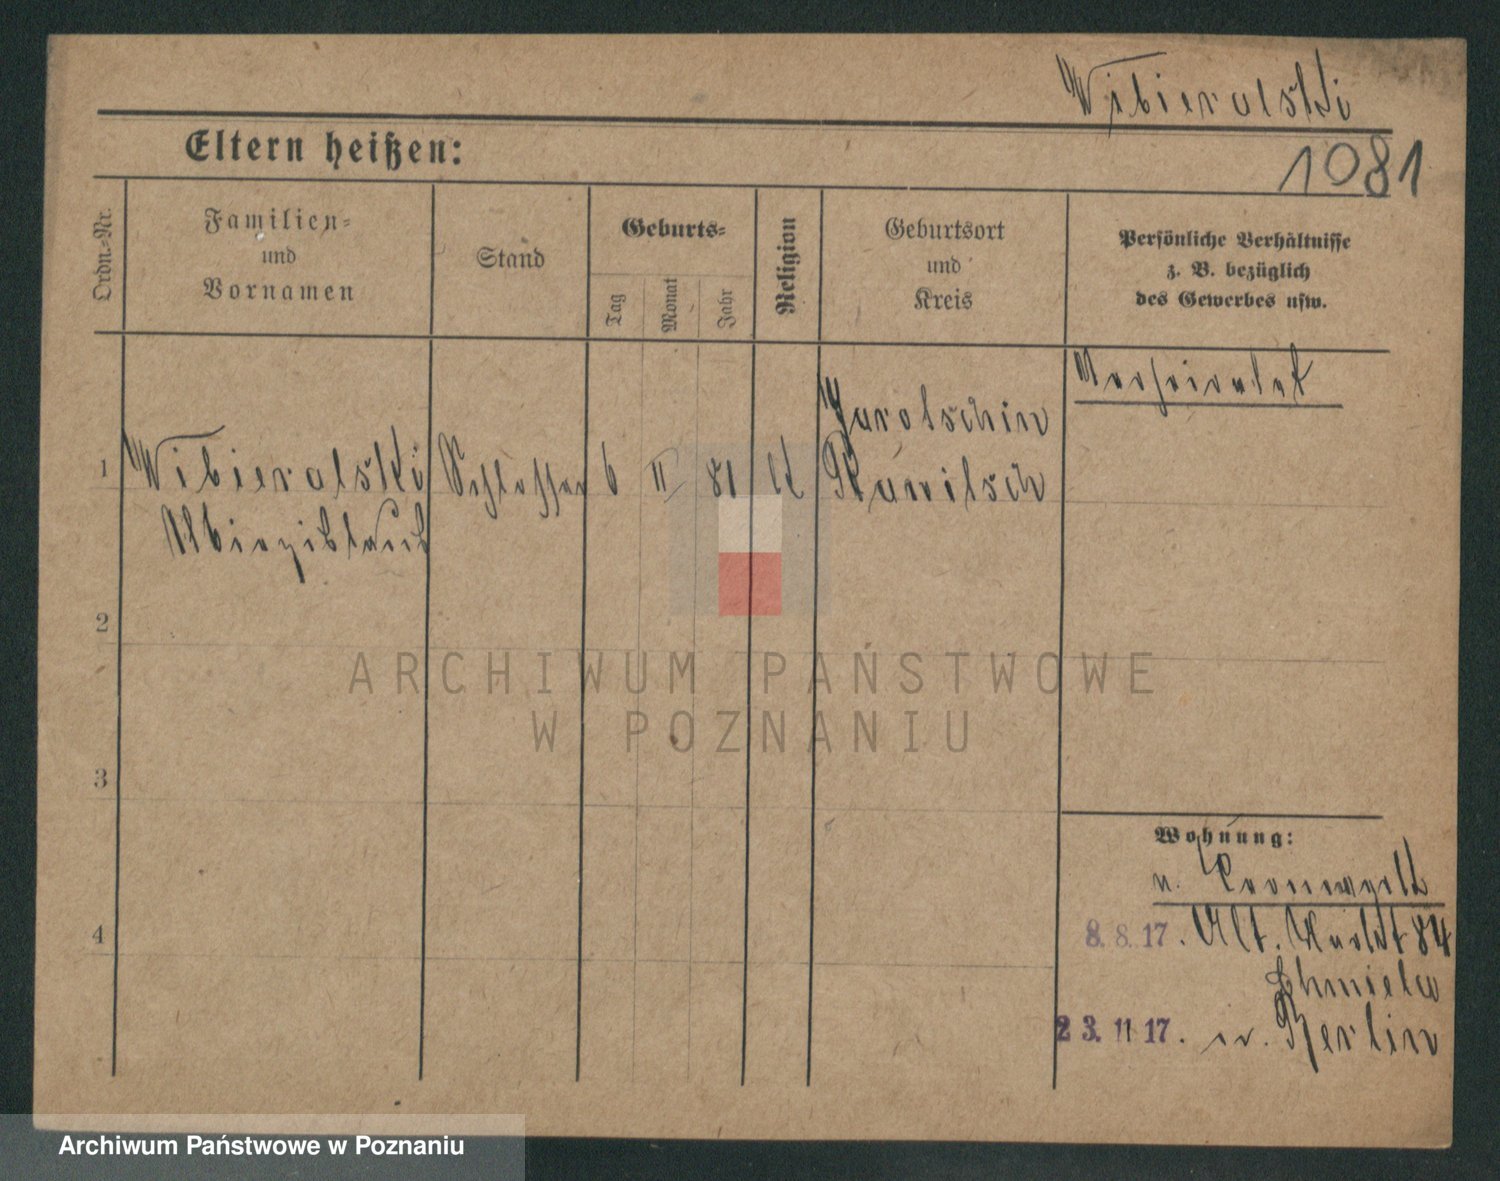 Wibieralski
Eltern heißen:
1081
Ordn.-Nr.
Familien-
und
Vornamen
Stand
Geburts-
Tag
Monat
Jahr
Religion
Geburtsort
und
Kreis
Persönliche Verhältnisse
z. B. bezüglich
des Gewerbes usw.
Verheiratet
Jarotschin
1 Wibieralski Schlosser 6 II 81 K Rawitsch
2
3
4
Wohnung:
n.
8. 8. 17. Alt. Markt 84
Chmiela
23. 11 17. n. Berlin
ARCHIWUM PAŃSTWOWE
W POZNANIU
Archiwum Państwowe w Poznaniu